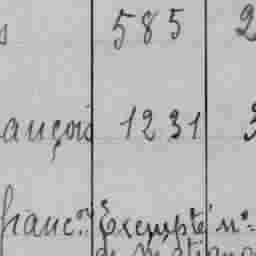 s 585 2
ançois 1231 3
franc.on Exempté nº
de